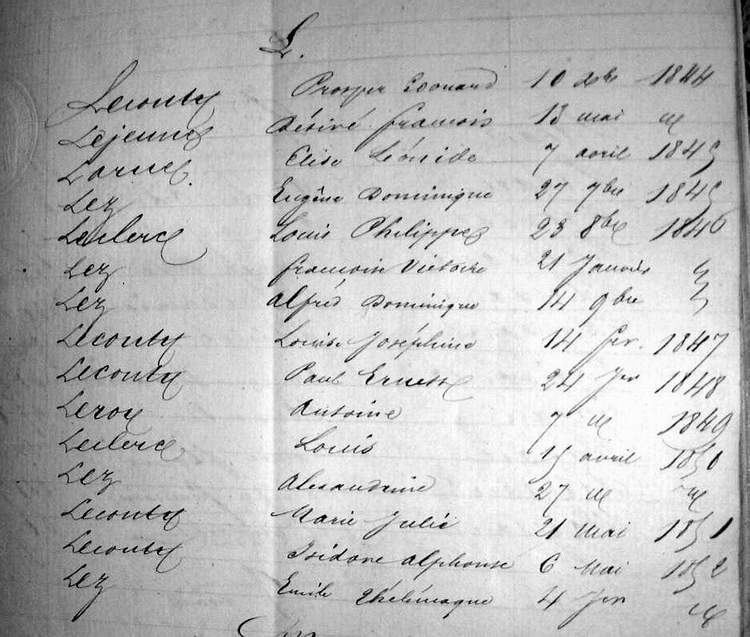 L.
Leconte Prosper Edouard 10 xbre 1844
Lejeune Désiré francois 13 mai id
Larue Elise Léonide 7 avril 1845
Lez Eugène Dominique 27 7bre 1845
Leclerc Louis Philippe 23 8bre 1846
Lez francois Victoire 21 Janvier
Lez Alfred Dominique 14 9bre
Leconte Louise Joséphine 14 fer. 1847
Leconte Paul Ernest 24 Jer 1848
Leroy Antoine 7 id 1849
Leclerc Louis 15 avril 1850
Lez Alexandrine 27 id id
Leconte Marie Julie 21 mai 1851
Leconte Isidore alphonse 6 Mai 1852
Lez Emile thélémaque 4 Jer id